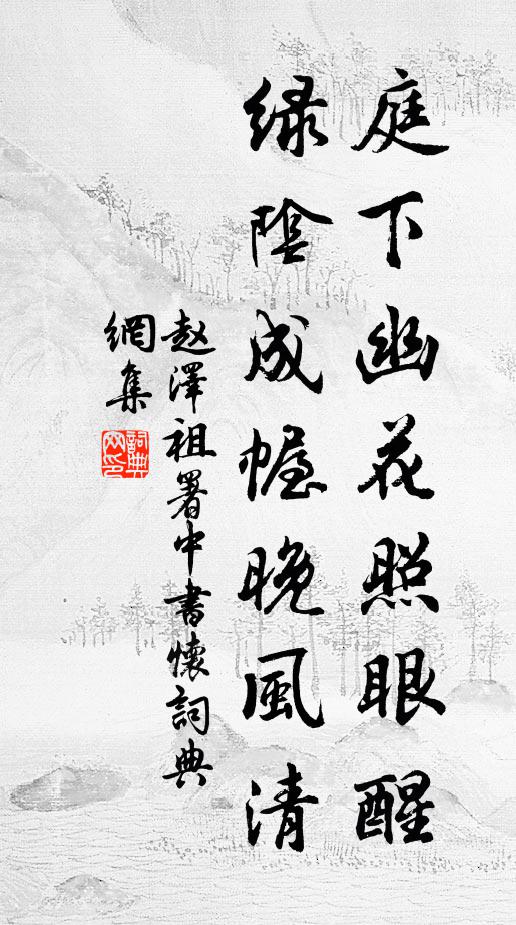 庭下幽花照眼醒
绿陰成幄晚風清
赵澤祖署中書懷詞典
網集
詞典网印